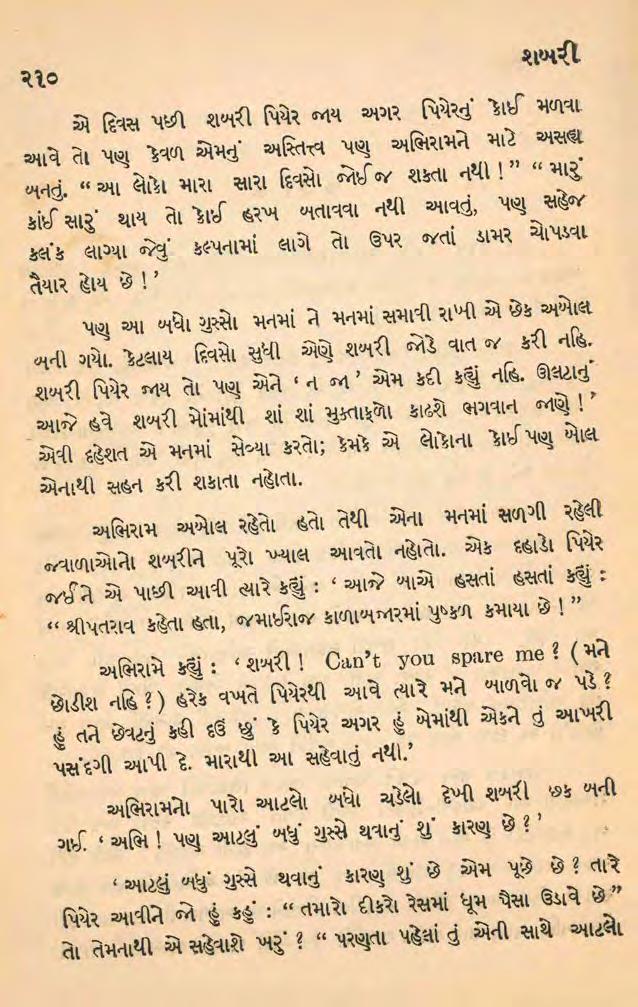 ૨૩૦
શબરી
એ દિવસ પછી શબરી પિયેર જાય અગર પિયેરનું કોઈ મળવા
આવે તો પણ કેવળ એમનું અસ્તિત્ત્વ પણ અભિરામને માટે અસહ્ય
બનતું. “ આ લોકો મારા સારા દિવસો જોઈ જ શકતા નથી ! ” “ મારું
કાંઈ સારું થાય તો કોઈ હરખ બતાવવા નથી આવતું, પણ સહેજ
કલંક લાગ્યા જેવું કલ્પનામાં લાગે તો ઉપર જતાં ડામર ચોપડવા
તૈયાર હોય છે ! ’
પણ આ બધો ગુસ્સો મનમાં ને મનમાં સમાવી રાખી એ છેક અબોલ
બની ગયો. કેટલાય દિવસો સુધી એણે શબરી જોડે વાત જ કરી નહિ.
શબરી પિયેર જાય તો પણ એને ‘ ન જા ’ એમ કદી કહ્યું નહિ. ઊલટાનું
આજે હવે શબરી મોંમાંથી શાં શાં મુક્તાફળો કાઢશે ભગવાન જાણે ! ’
એવી દહેશત એ મનમાં સેવ્યા કરતો; કેમકે એ લોકોના કોઈ પણ બોલ
એનાથી સહન કરી શકાતા નહોતા.
અભિરામ અબોલ રહેતો હતો તેથી એના મનમાં સળગી રહેલી
જ્વાળાઓનો શબરીને પૂરો ખ્યાલ આવતો નહોતો. એક દહાડો પિયેર
જઈને એ પાછી આવી ત્યારે કહ્યું : ‘ આજે બાએ હસતાં હસતાં કહ્યું :
“ શ્રીપતરાવ કહેતા હતા, જમાઈરાજ કાળાબજારમાં પુષ્કળ કમાયા છે ! ”
અભિરામે કહ્યું : ‘ શબરી ! Can’t you spare me ? ( મને
છોડીશ નહિ ? ) હરેક વખતે પિયેરથી આવે ત્યારે મને બાળવો જ પડે ?
હું તને છેવટનું કહી દઉં છું કે પિયેર અગર હું બેમાંથી એકને તું આખરી
પસંદગી આપી દે. મારાથી આ સહેવાતું નથી.’
અભિરામનો પારો આટલો બધો ચડેલો દેખી શબરી છક બની
ગઈ. ‘ અભિ ! પણ આટલું બધું ગુસ્સે થવાનું શું કારણ છે ? ’
‘ આટલું બધું ગુસ્સે થવાનું કારણ શું છે એમ પૂછે છે ? તારે
પિયેર આવીને જો હું કહું : “ તમારો દીકરો રેસમાં ધૂમ પૈસા ઉડાવે છે ”
તો તેમનાથી એ સહેવાશે ખરું ? “ પરણતા પહેલાં તું એની સાથે આટલો